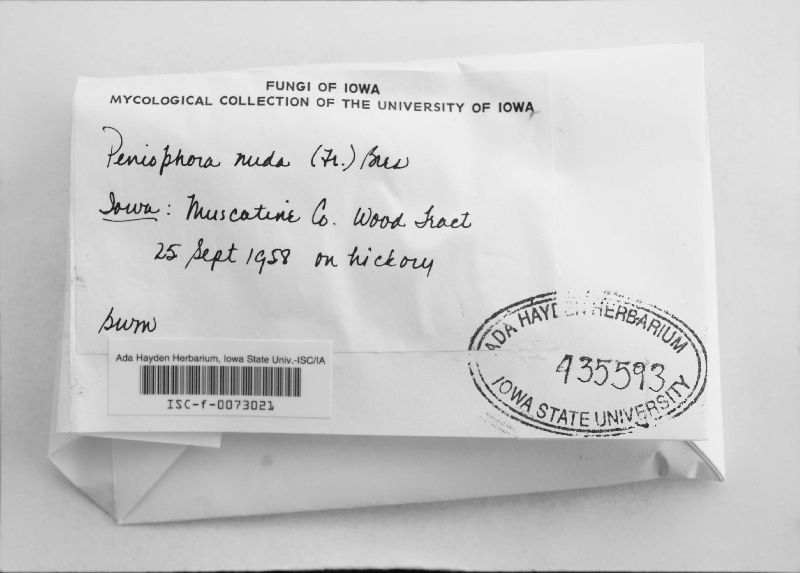 FUNGI OF IOWA
MYCOLOGICAL COLLECTION OF THE UNIVERSITY OF IOWA
Peniophora nuda (Fr.) Bres
Iowa: Muscatine Co. Wood Tract
25 Sept 1958 on hickory
Ada Hayden Herbarium, Iowa State Univ.-ISC/IA
ISC-f-0073021
ADA HAYDEN HERBARIUM
435593
IOWA STATE UNIVERSITY